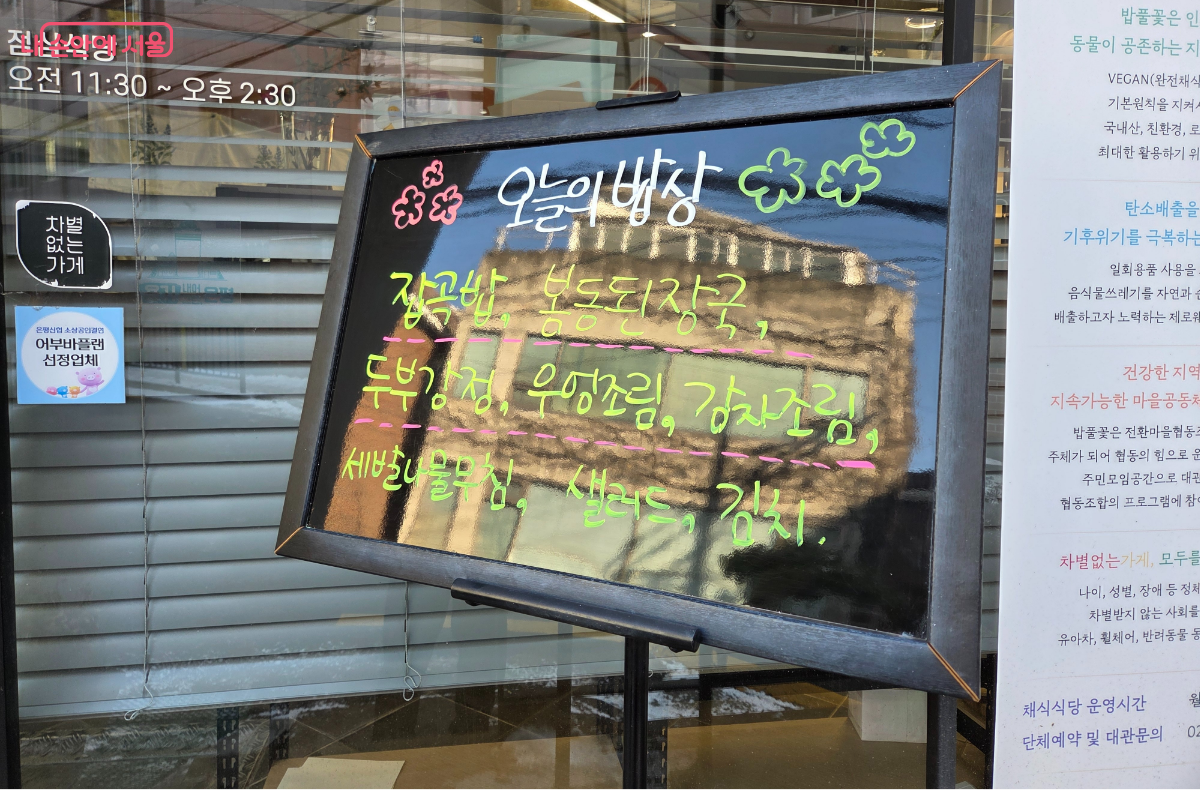 내 손안에 서울
점심식당
오전 11:30 ~ 오후 2:30
차별
없는
가게
은평신협 소상공인결연
어부바플랜
선정업체
오늘의 밥상
잡곡밥, 봄동된장국,
두부강정, 우엉조림, 감자조림,
세발나물무침, 샐러드, 김치.
밥풀꽃은 인
동물이 공존하는 지
VEGAN(완전채식
기본원칙을 지켜서
국내산, 친환경, 로
최대한 활용하기 위
탄소배출을
기후위기를 극복하는
일회용품 사용을
음식물쓰레기를 자연과 순
배출하고자 노력하는 제로웨
건강한 지역
지속가능한 마을공동체
밥풀꽃은 전환마을협동조
주체가 되어 협동의 힘으로 운
주민모임공간으로 대관
협동조합의 프로그램에 참여
차별없는가게, 모두를
나이, 성별, 장애 등 정체
차별받지 않는 사회를
유아차, 휠체어, 반려동물 동
채식식당 운영시간 월
단체예약 및 대관문의 02